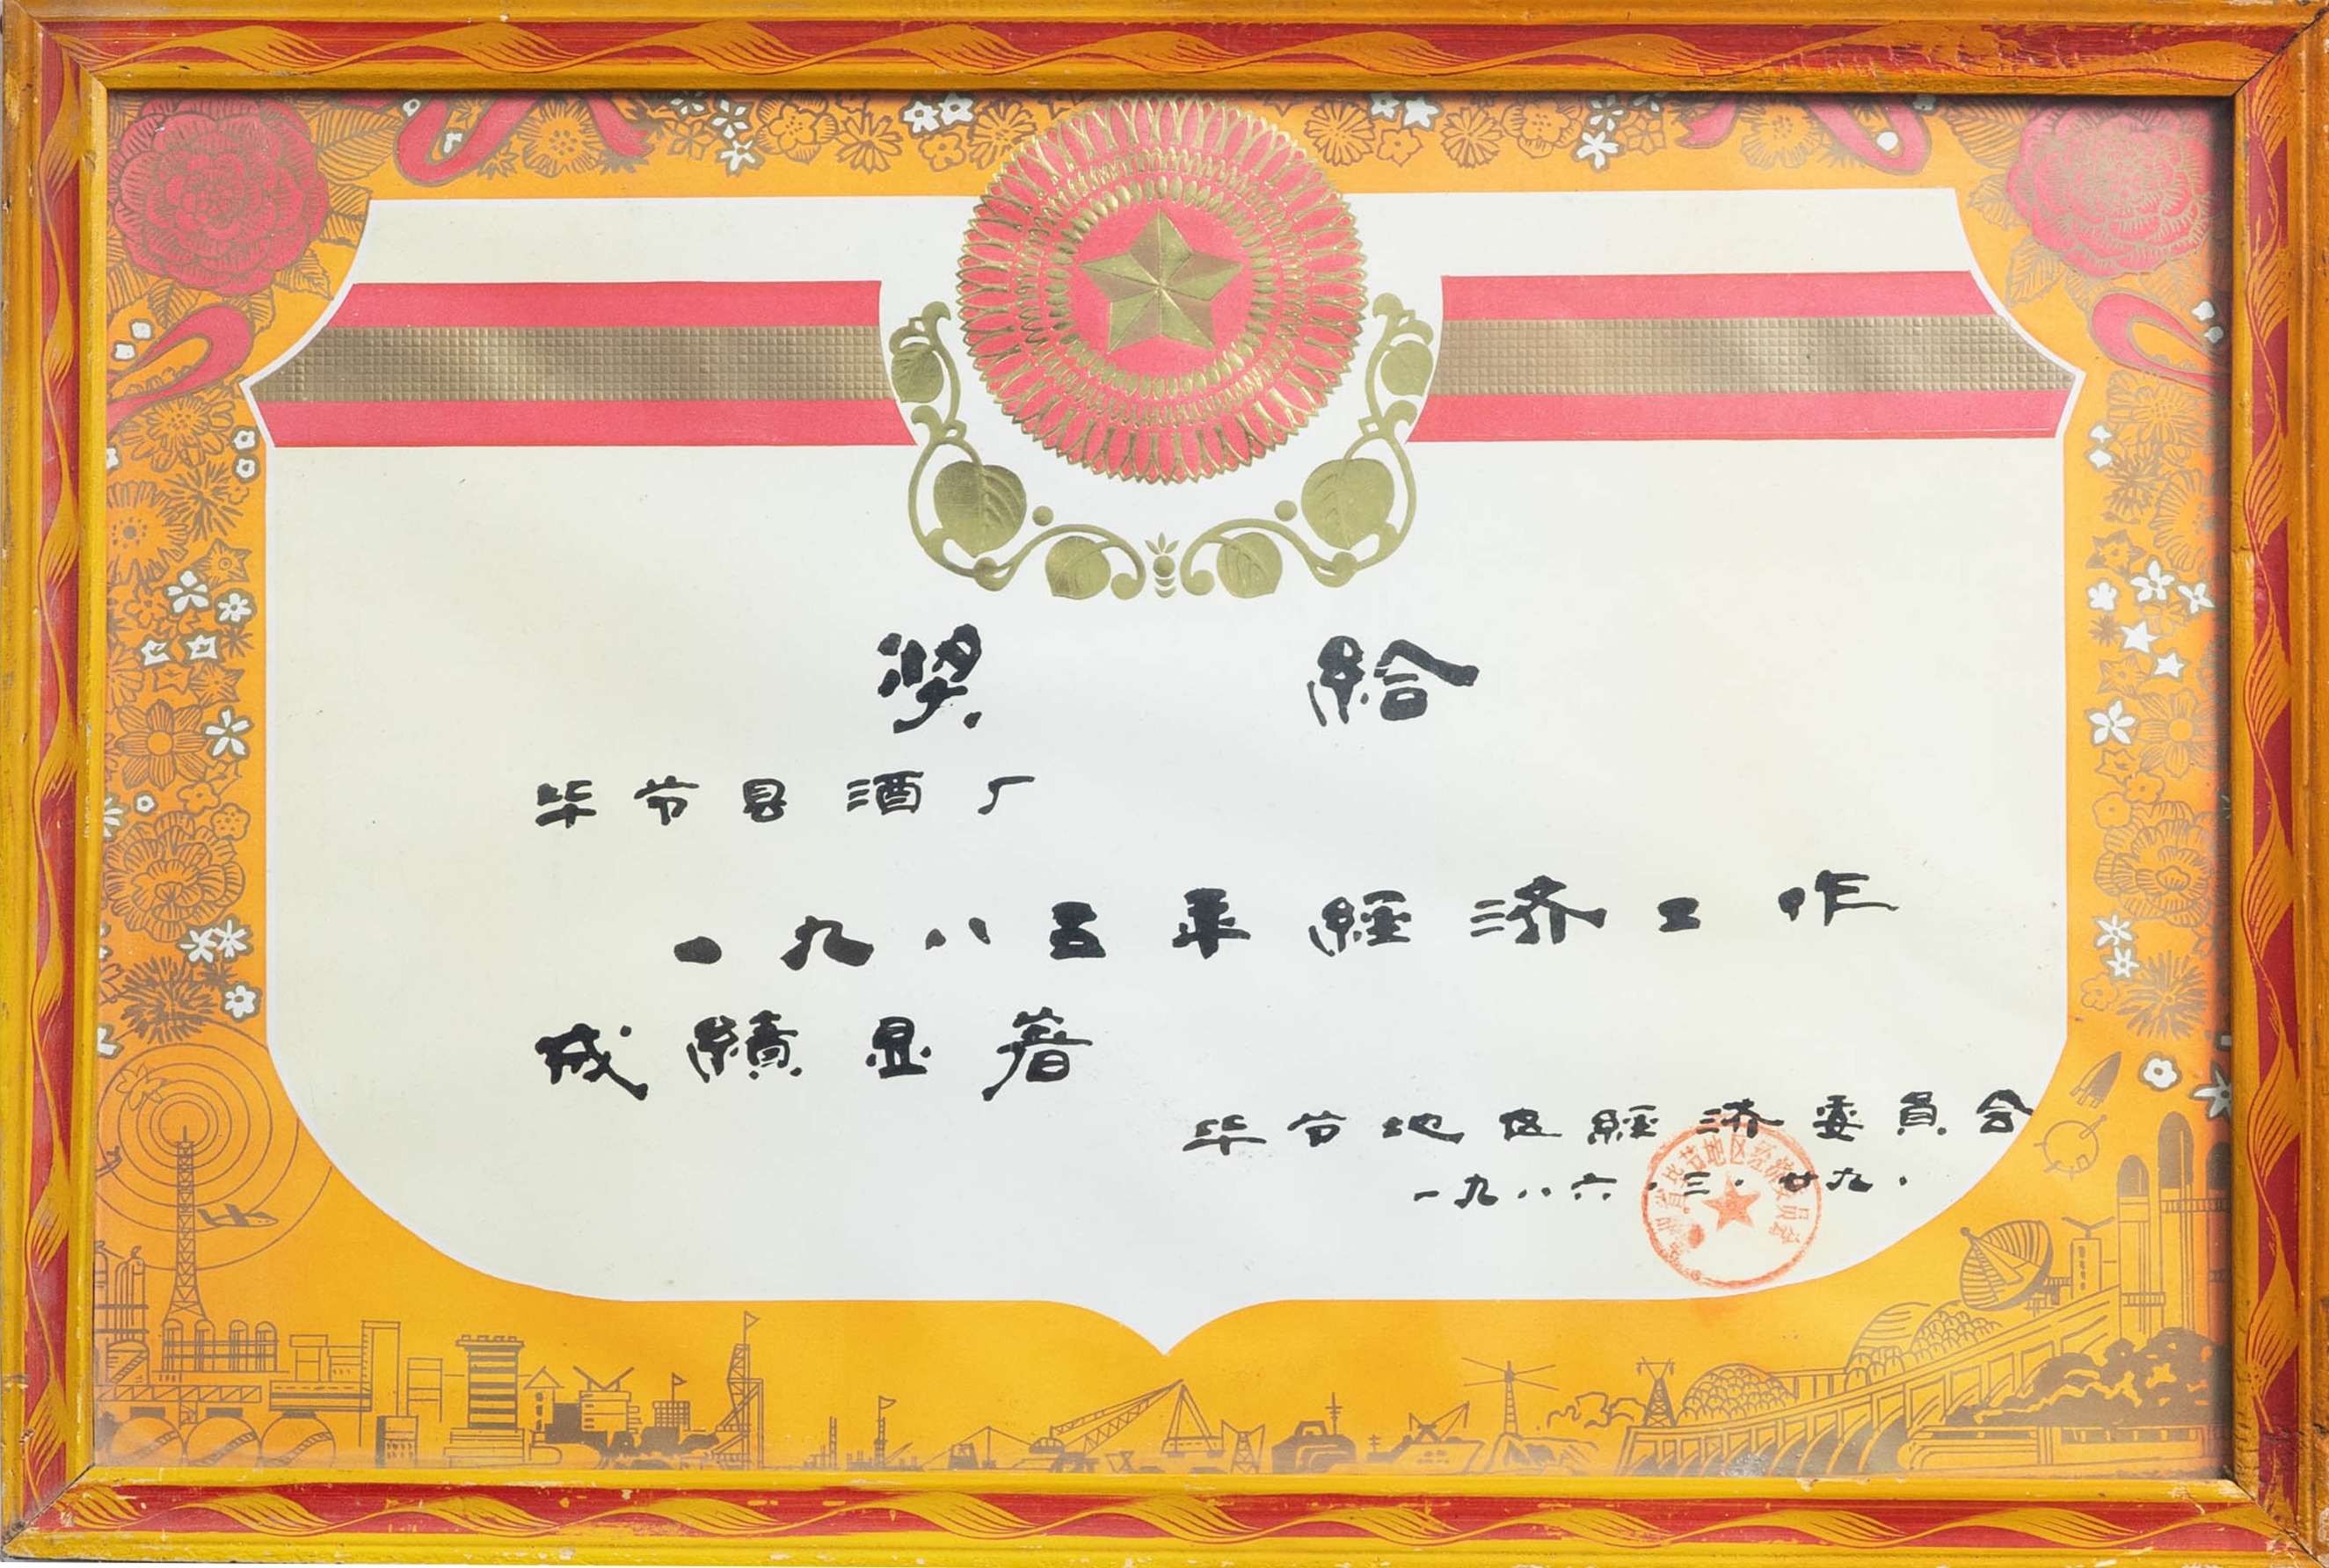 奖 給
毕节县酒厂
一九八五年經济工作
成績显著
毕节地区經济委員会
一九八六·三·廿九·
贵州省毕节地区经济委员会